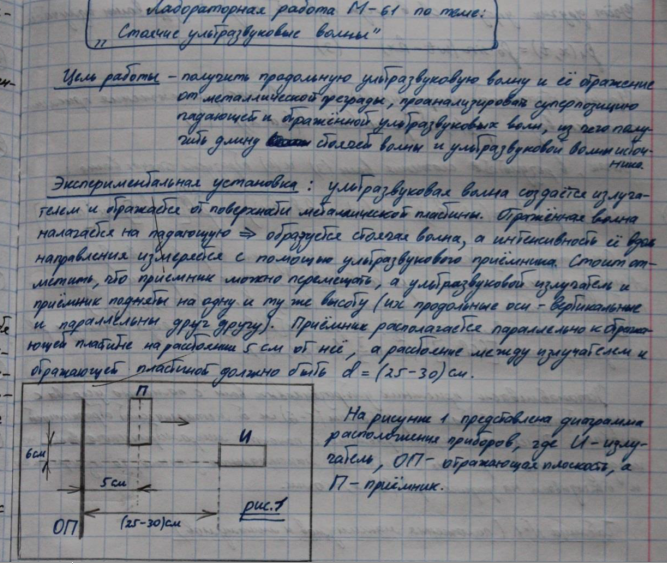 Лабораторная работа М-61 по теме:
„Стоячие ультразвуковые волны"
Цель работы – получить продольную ультразвуковую волну и её отражение
от металлической преграды, проанализировать суперпозицию
падающей и отражённой ультразвуковых волн, из чего полу-
чить длину стоячей волны и ультразвуковой волны источ-
ника.
Экспериментальная установка: ультразвуковая волна создаётся излуча-
телем и отражается от поверхности металлической пластины. Отражённая волна
налагается на падающую ⇒ образуется стоячая волна, а интенсивность её вдоль
направления измеряется с помощью ультразвукового приёмника. Стоит от-
метить, что приёмник можно перемещать, а ультразвуковой излучатель и
приёмник подняты на одну и ту же высоту (их продольные оси - вертикальные
и параллельны друг другу). Приёмник располагается параллельно к отража-
ющей пластине на расстоянии 5 см от неё, а расстояние между излучателем и
отражающей пластиной должно быть d = (25-30) см.
П
И
6см
5 см
(25-30)см
рис.1
ОП
На рисунке 1 представлена диаграмма
расположения приборов, где И - излу-
чатель, ОП - отражающая плоскость, а
П - приёмник.